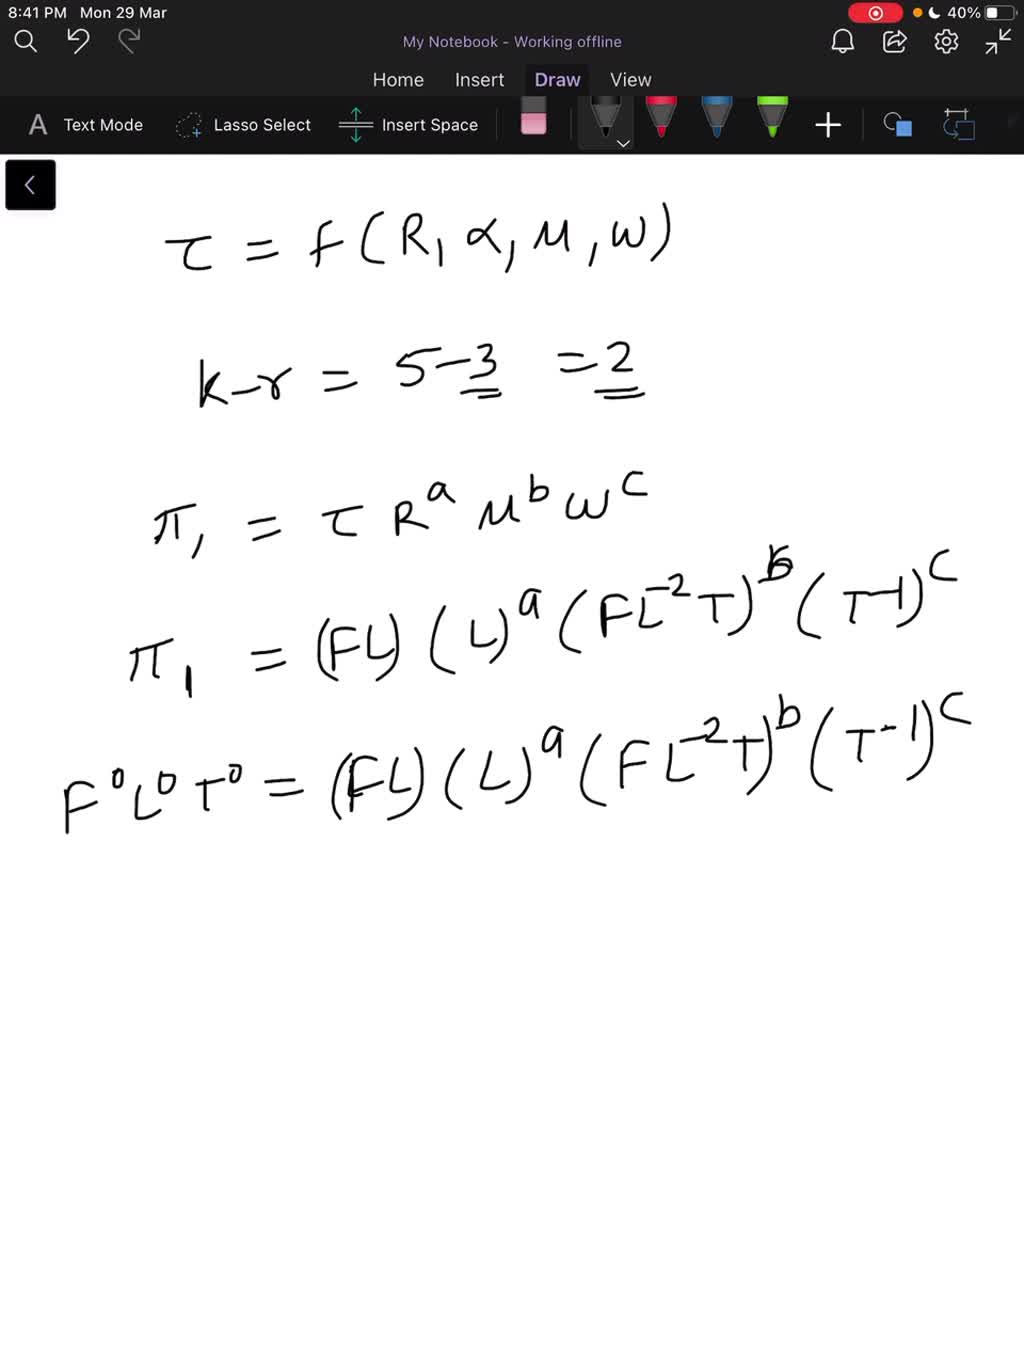 8:41 PM Mon 29 Mar 40%
My Notebook - Working offline
Home Insert Draw View
A Text Mode Lasso Select Insert Space
τ = f(R, α, μ, ω)
k-r = 5-3 = 2
π₁ = τ Rᵃ μᵇ ωᶜ
π₁ = (FL) (L)ᵃ (FL⁻²T)ᵇ (T⁻¹)ᶜ
F⁰L⁰T⁰ = (FL) (L)ᵃ (FL⁻²T)ᵇ (T⁻¹)ᶜ